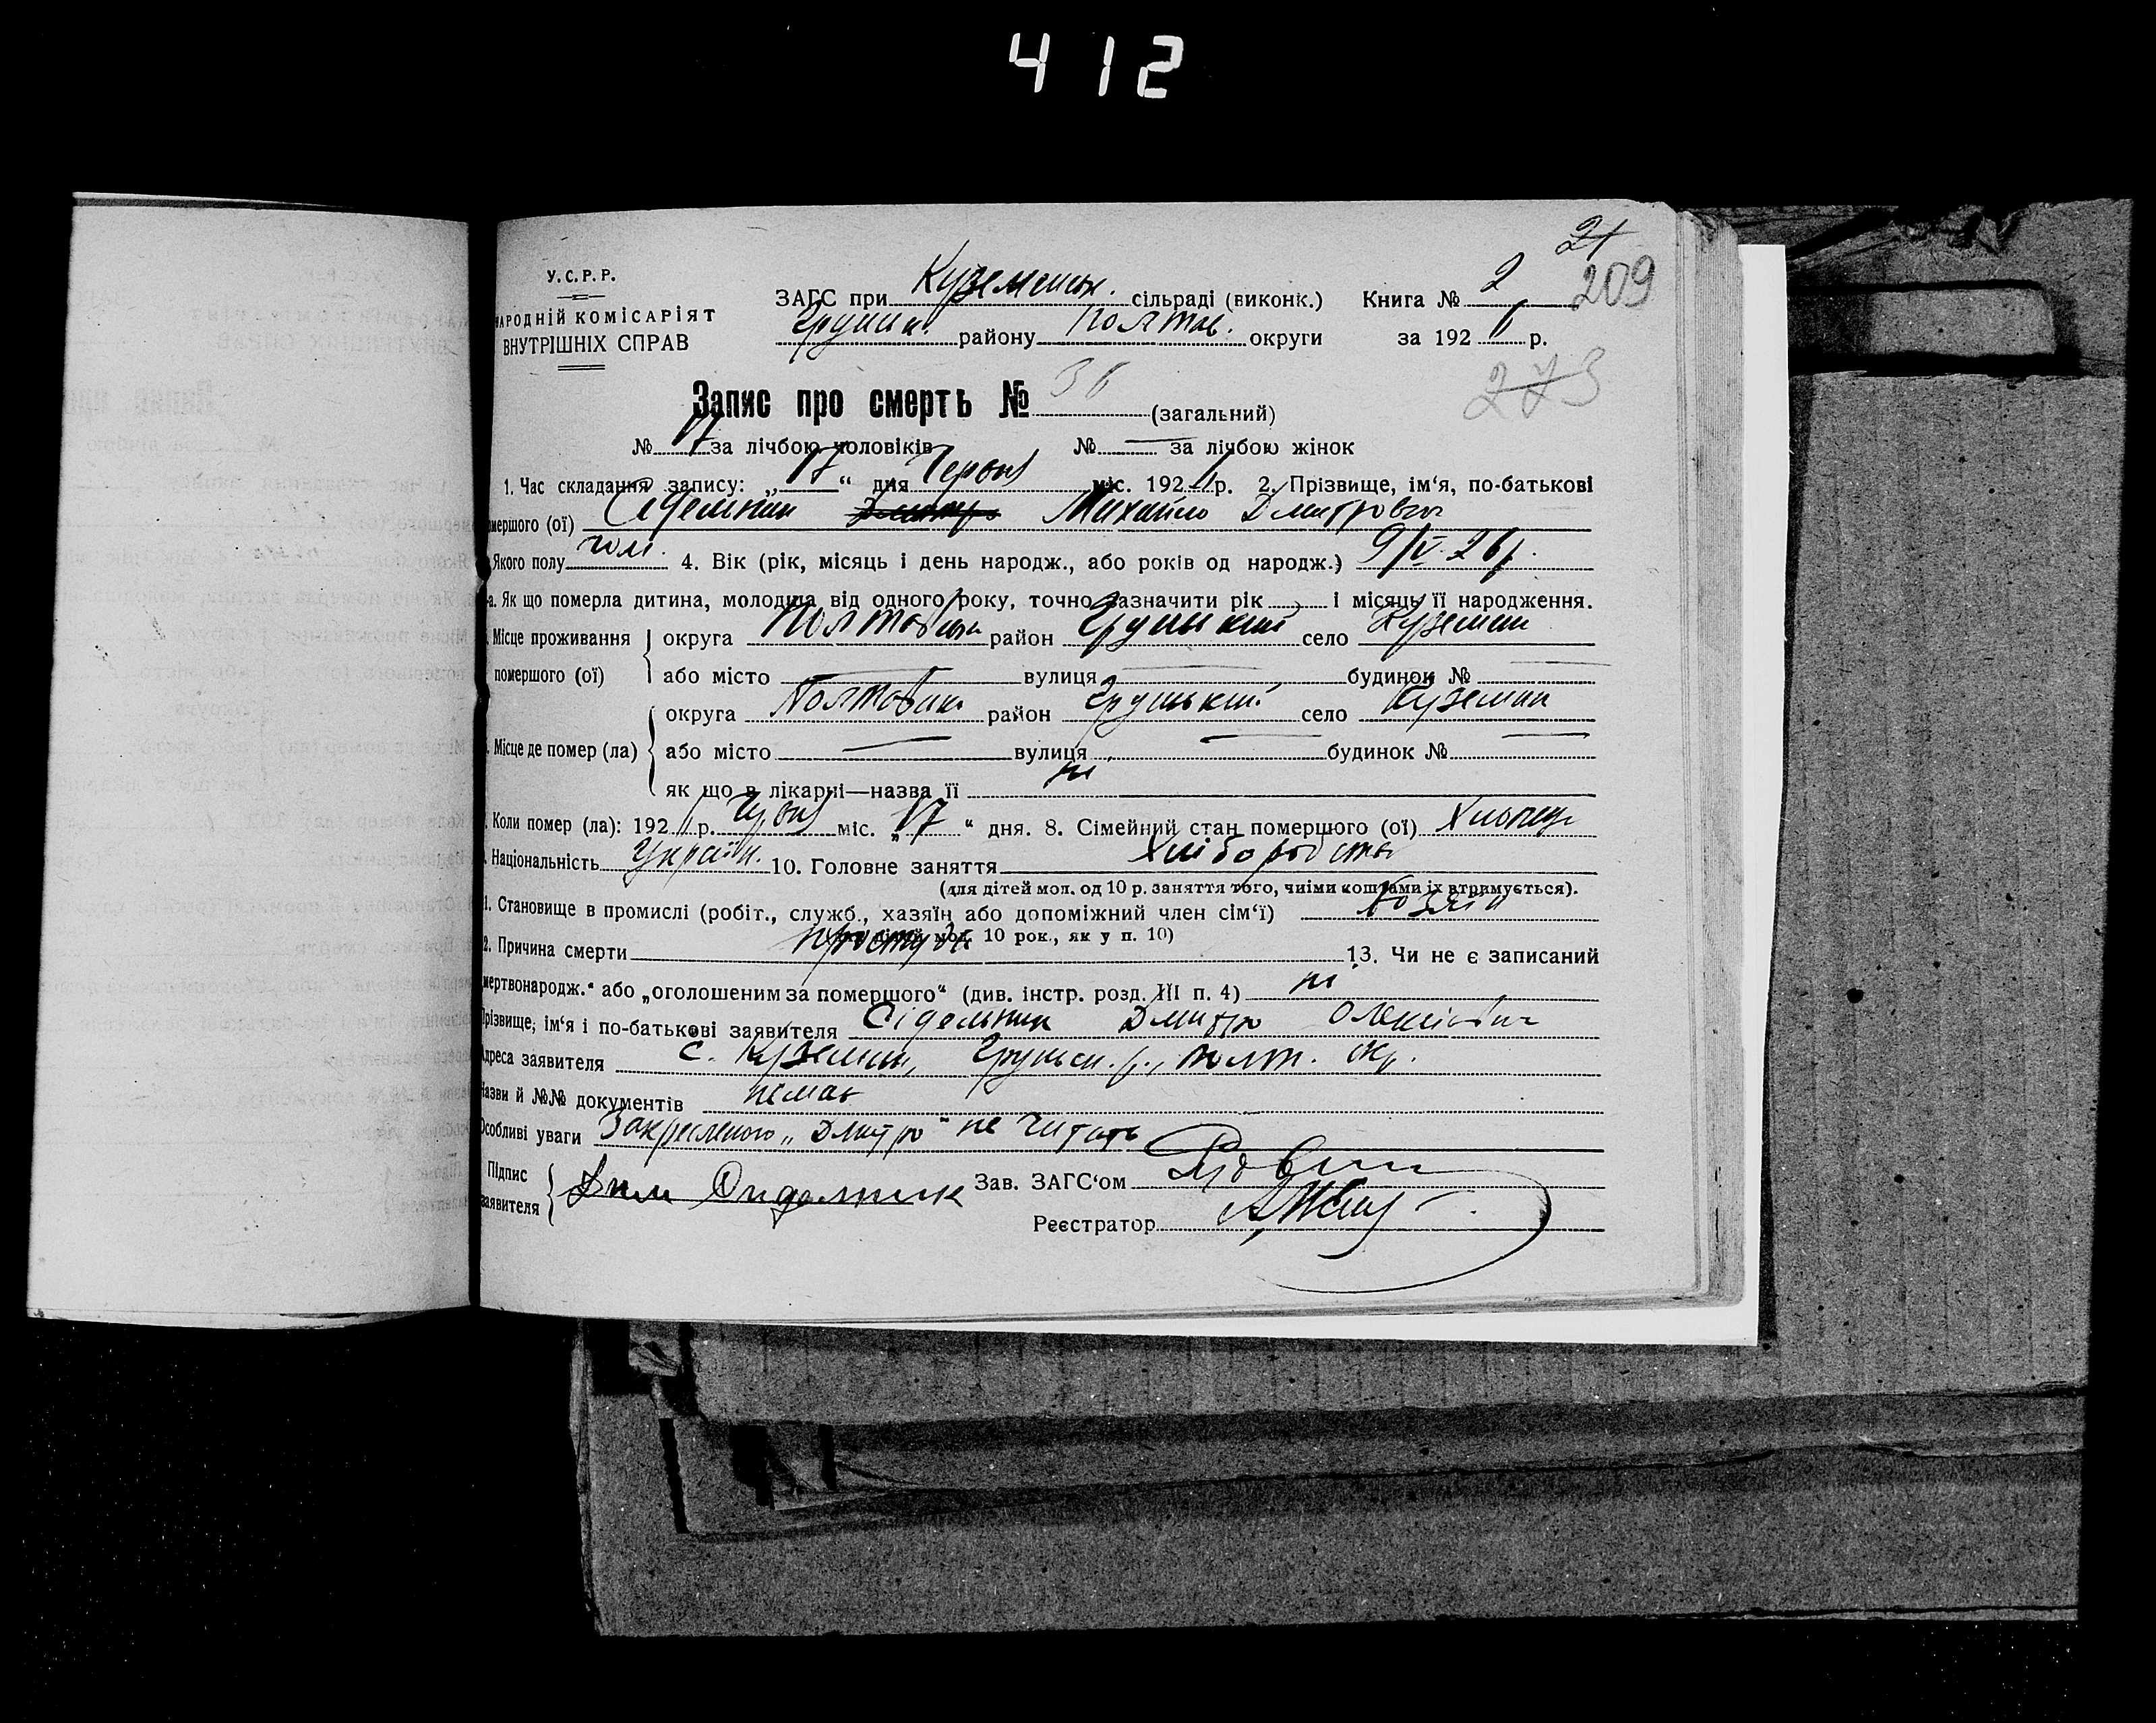 412
21
209
У.С.Р.Р.
НАРОДНІЙ КОМІСАРІЯТ
ВНУТРІШНІХ СПРАВ
ЗАГС при Куземенськ. сільраді (виконк.) Книга № 2
Грунськ. району Полтав. округи за 1926 р.
273
Запис про смерть № 36 (загальний)
№ 17 за лічбою чоловіків № — за лічбою жінок
1. Час складання запису: „17“ дня Червня міс. 1926 р. 2. Прізвище, ім‘я, по-батькові
мершого (ої) Сідельник Дмитро Михайло Дмитрович
Якого полу чол. 4. Вік (рік, місяць і день народж., або років од народж.) 9/V-26р.
а. Як що померла дитина, молодша від одного року, точно зазначити рік і місяць її народження.
Місце проживання округа Полтавська район Грунський село Куземин
помершого (ої) або місто — вулиця — будинок № —
округа Полтавська район Грунський село Куземин
Місце де помер (ла) або місто — вулиця — будинок № —
як що в лікарні—назва її ні
Коли помер (ла): 1926 р. Червня міс. „17“ дня. 8. Сімейний стан помершого (ої) Хлопець
Національність Україн. 10. Головне заняття Хліборобство
(для дітей мол. од 10 р. заняття того, чиїми коштами їх втримується).
1. Становище в промислі (робіт., служб., хазяїн або допоміжний член сім‘ї) Хозяїн
мол. 10 рок., як у п. 10)
2. Причина смерти простуда 13. Чи не є записаний
мертвонародж.“ або „оголошеним за помершого“ (див. інстр. розд. III п. 4) ні
Прізвище, ім‘я і по-батькові заявителя Сідельник Дмитро Олексієвич
Адреса заявителя с. Куземин, Грунськ. р., Полт. окр.
Назви й №№ документів немає
Особливі уваги Закресленого „Дмитро“ не читать
Підпис
заявителя Сиделник
Зав. ЗАГС‘ом
Реєстратор